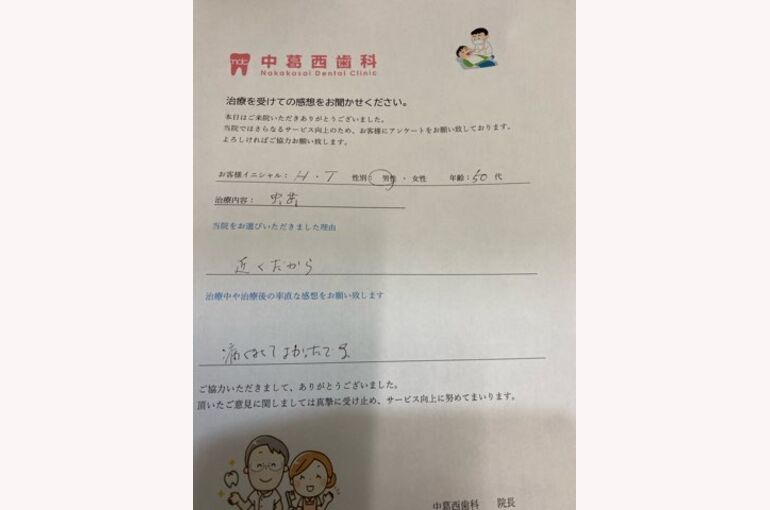 ndc 中葛西歯科
Nakakasai Dental Clinic
治療を受けての感想をお聞かせください。
本日はご来院いただきありがとうございました。
当院ではさらなるサービス向上のため、お客様にアンケートをお願い致しております。
よろしければご協力お願い致します。
お客様イニシャル： H・T 性別： 男性 ・ 女性 年齢：50 代
治療内容： 虫歯
当院をお選びいただきました理由
近くだから
治療中や治療後の率直な感想をお願い致します
痛くなくてよかったです
ご協力いただきまして、ありがとうございました。
頂いたご意見に関しましては真摯に受け止め、サービス向上に努めてまいります。
中葛西歯科 院長